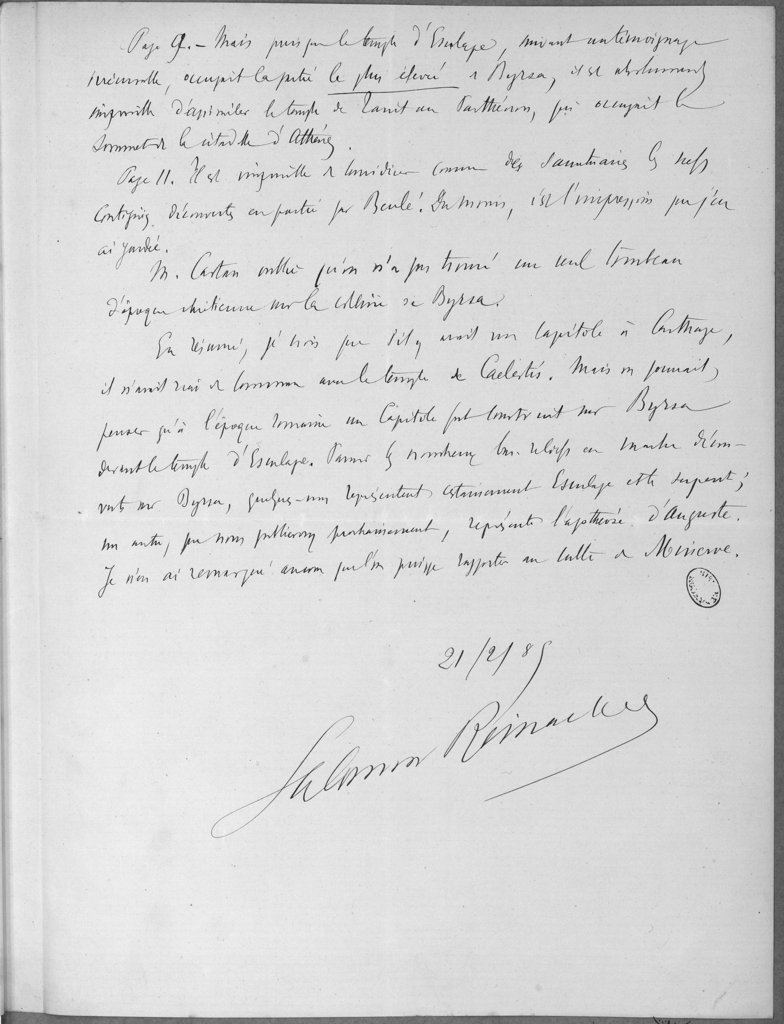 Page 9. – Mais puisque le temple d'Esculape, suivant un témoignage
irrécusable, occupait la partie le plus élevée de Byrsa, il est absolument
impossible d'assimiler le temple de Tanit au Parthénon, qui occupait le
sommet de la citadelle d'Athènes.
Page 11. Il est impossible de considérer comme des sanctuaires les nefs
contigües découvertes en partie par Beulé. Du moins, c'est l'impression que j'en
ai gardée.
M. Castan oublie qu'on n'a pas trouvé un seul tombeau
d'époque chrétienne sur la colline de Byrsa.
En résumé, je crois que s'il y avait un Capitole à Carthage,
il n'avait rien de commun avec le temple de Caelestis. Mais on pourrait
penser qu'à l'époque romaine un Capitole fut construit sur Byrsa
devant le temple d'Esculape. Parmi les nombreux bas-reliefs en marbre décou-
verts sur Byrsa, quelques-uns représentent certainement Esculape et le serpent;
un autre, que nous publierons prochainement, représente l'apothéose d'Auguste.
Je n'en ai remarqué aucun que l'on puisse rapporter au culte de Minerve.
21/2/85
Salomon Reinach